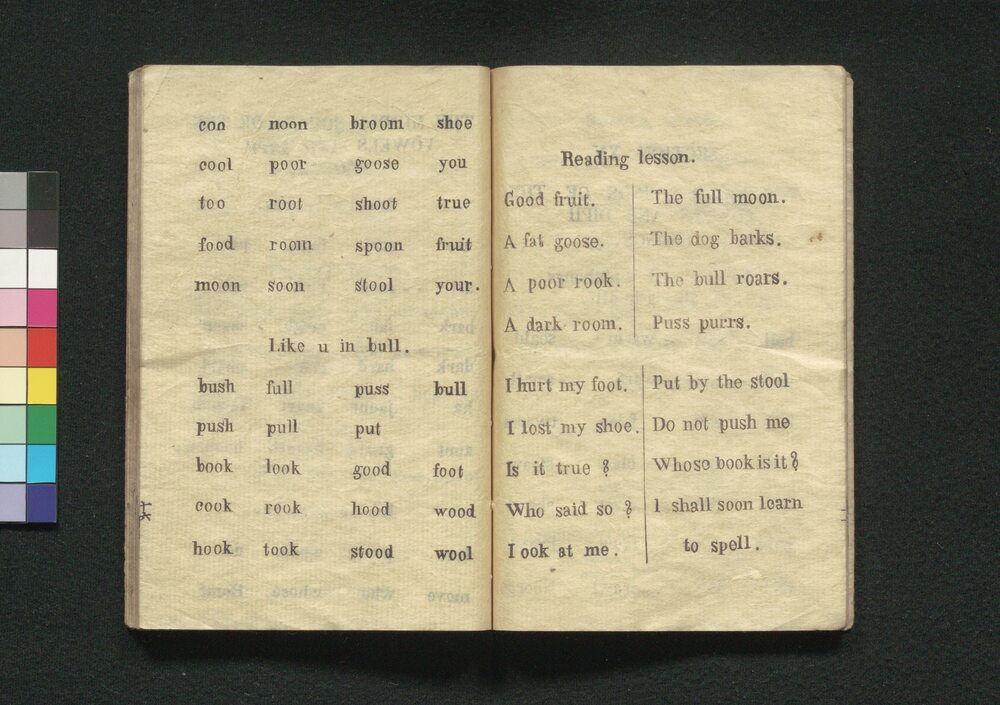 coo noon broom shoe
cool poor goose you
too root shoot true
food room spoon fruit
moon soon stool your.
Like u in bull.
bush full puss bull
push pull put
book look good foot
cook rook hood wood
hook took stood wool
Reading lesson.
Good fruit.
A fat goose.
A poor rook.
A dark room.
The full moon.
The dog barks.
The bull roars.
Puss purrs.
I hurt my foot.
I lost my shoe.
Is it true ?
Who said so ?
Look at me.
Put by the stool
Do not push me
Whose book is it ?
I shall soon learn
to spell.